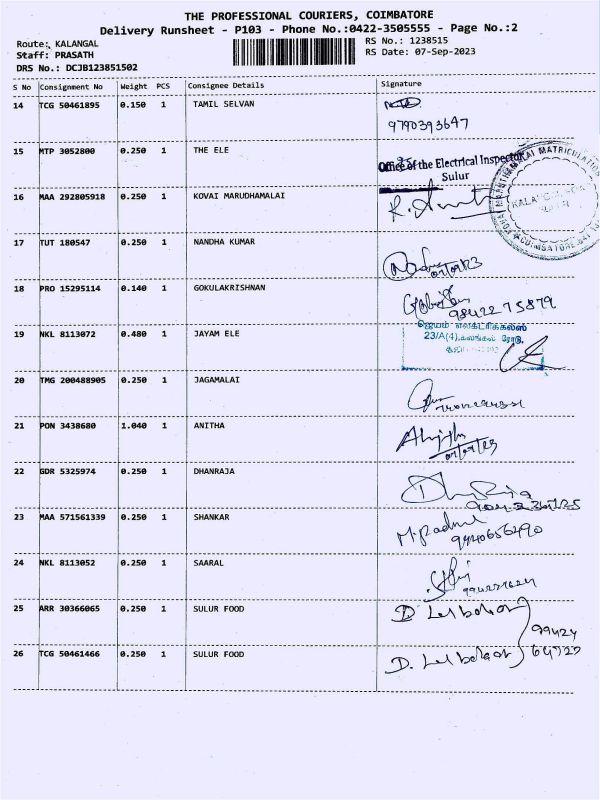 THE PROFESSIONAL COURIERS, COIMBATORE
Delivery Runsheet - P103 - Phone No.:0422-3505555 - Page No.:2
Route: KALANGAL
RS No.: 1238515
Staff: PRASATH
RS Date: 07-Sep-2023
DRS No.: DCJB123851502
S No Consignment No Weight PCS Consignee Details Signature
14 TCG 50461895 0.150 1 TAMIL SELVAN
9790393647
15 MTP 3052800 0.250 1 THE ELE
Office of the Electrical Inspector
Sulur
16 MAA 292805918 0.250 1 KOVAI MARUDHAMALAI
17 TUT 180547 0.250 1 NANDHA KUMAR
18 PRO 15295114 0.140 1 GOKULAKRISHNAN
9842275879
19 NKL 8113072 0.480 1 JAYAM ELE
ஜெயம் எலக்ட்ரிக்கல்ஸ்
23/A(4), கலங்கல் ரோடு,
20 TMG 200488905 0.250 1 JAGAMALAI
21 PON 3438680 1.040 1 ANITHA
22 GDR 5325974 0.250 1 DHANRAJA
23 MAA 571561339 0.250 1 SHANKAR
24 NKL 8113052 0.250 1 SAARAL
25 ARR 30366065 0.250 1 SULUR FOOD
99424
26 TCG 50461466 0.250 1 SULUR FOOD